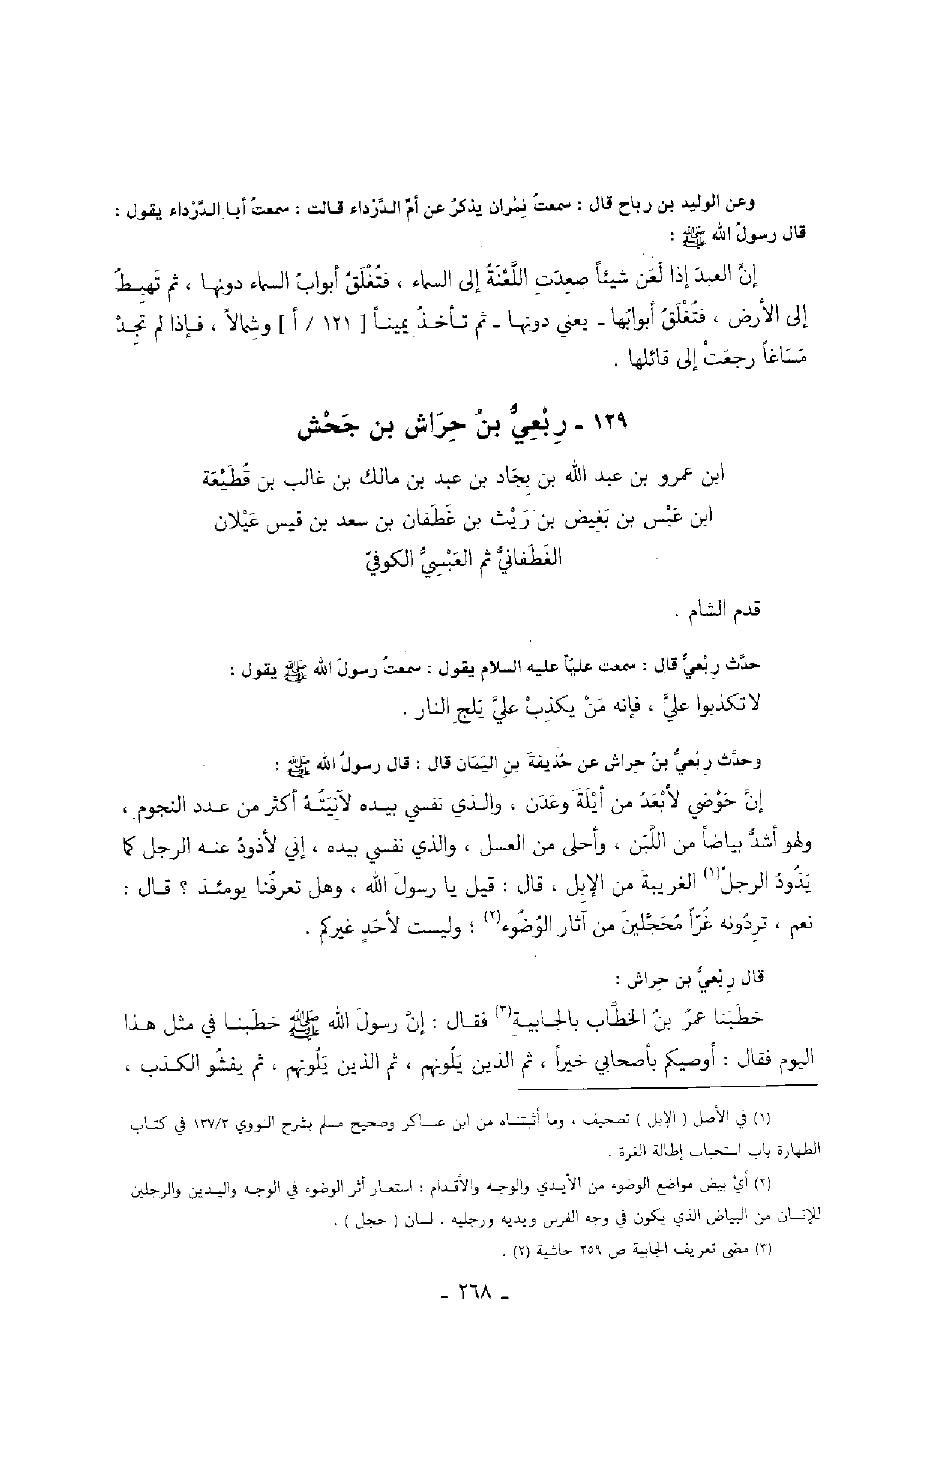 وعن الوليد بن رباح قال : سمعتُ نِمْران يذكرُ عن أمّ الدَّرْداء قالت : سمعتُ أبا الدَّرْداء يقول :
قال رسولُ الله ﷺ :
إنَّ العبدَ إذا لَعَن شيئاً صعِدَتِ اللَّعْنَةُ إلى السماء ، فتُغْلَقُ أبوابُ السماء دونها ، ثم تَهبِطُ
إلى الأرض ، فتُغْلَقُ أبوابُها - يعني دونها - ثم تأخذُ يميناً [ ١٢١ / أ ] وشمالاً ، فإذا لم تجِدْ
مَسَاغاً رجعَتْ إلى قائلها .
١٢٩ - رِبْعِيُّ بنُ حِرَاش بن جَحْش
ابن عمرو بن عبد الله بن بِجَاد بن عبد بن مالك بن غالب بن قُطَيْعَة
ابن عَبْس بن بَغِيض بن رَيْث بن غَطَفان بن سعد بن قيس عَيْلان
الغَطَفانيُّ ثم العَبْسِيُّ الكوفيّ
قدم الشام .
حدَّث رِبْعيُّ قال : سمعت عليّاً عليه السلام يقول : سمعتُ رسولَ الله ﷺ يقول :
لا تكذبوا عليَّ ، فإنه مَنْ يكذِبْ عليَّ يَلجِ النار .
وحدَّث رِبْعيُّ بنُ حِراش عن حُذيفةَ بنِ اليَمَان قال : قال رسولُ الله ﷺ :
إنَّ حَوْضي لأبْعَدُ من أيْلَةَ وعَدَن ، والذي نفسي بيده لآنيَتُهُ أكثر من عدد النجوم ،
ولهو أشدُّ بياضاً من اللَّبَن ، وأحلى من العسل ، والذي نفسي بيده ، إني لأذودُ عنه الرجل كما
يَذُودُ الرجلُ(١) الغريبةَ من الإبل ، قال : قيل يا رسولَ الله ، وهل تعرفُنا يومئذ ؟ قال :
نعم ، ترِدُونه غُرّاً مُحَجَّلينَ من آثار الوُضُوء(٢) ؛ وليست لأحَدٍ غيركم .
قال رِبْعيُّ بن حراش :
خطَبَنا عمرُ بنُ الخطَّاب بالجابية(٣) فقال : إنَّ رسولَ الله ﷺ خطَبنا في مثل هذا
اليوم فقال : أوصيكم بأصحابي خيراً ، ثم الذين يَلُونهم ، ثم الذين يَلُونهم ، ثم يفشُو الكذب ،
(١) في الأصل ( الإبل ) تصحيف ، وما أثبتناه من ابن عساكر وصحيح مسلم بشرح النووي ١٣٧/٣ في كتاب
الطهارة باب استحباب إطالة الغرة .
(٢) أيْ بيض مواضع الوضوء من الأيدي والوجه والأقدام : استعار أثر الوضوء في الوجه واليدين والرجلين
للإنسان من البياض الذي يكون في وجه الفرس ويديه ورجليه . لسان ( حجل ) .
(٣) مضى تعريف الجابية ص ٢٥٩ حاشية (٢) .
- ٢٦٨ -